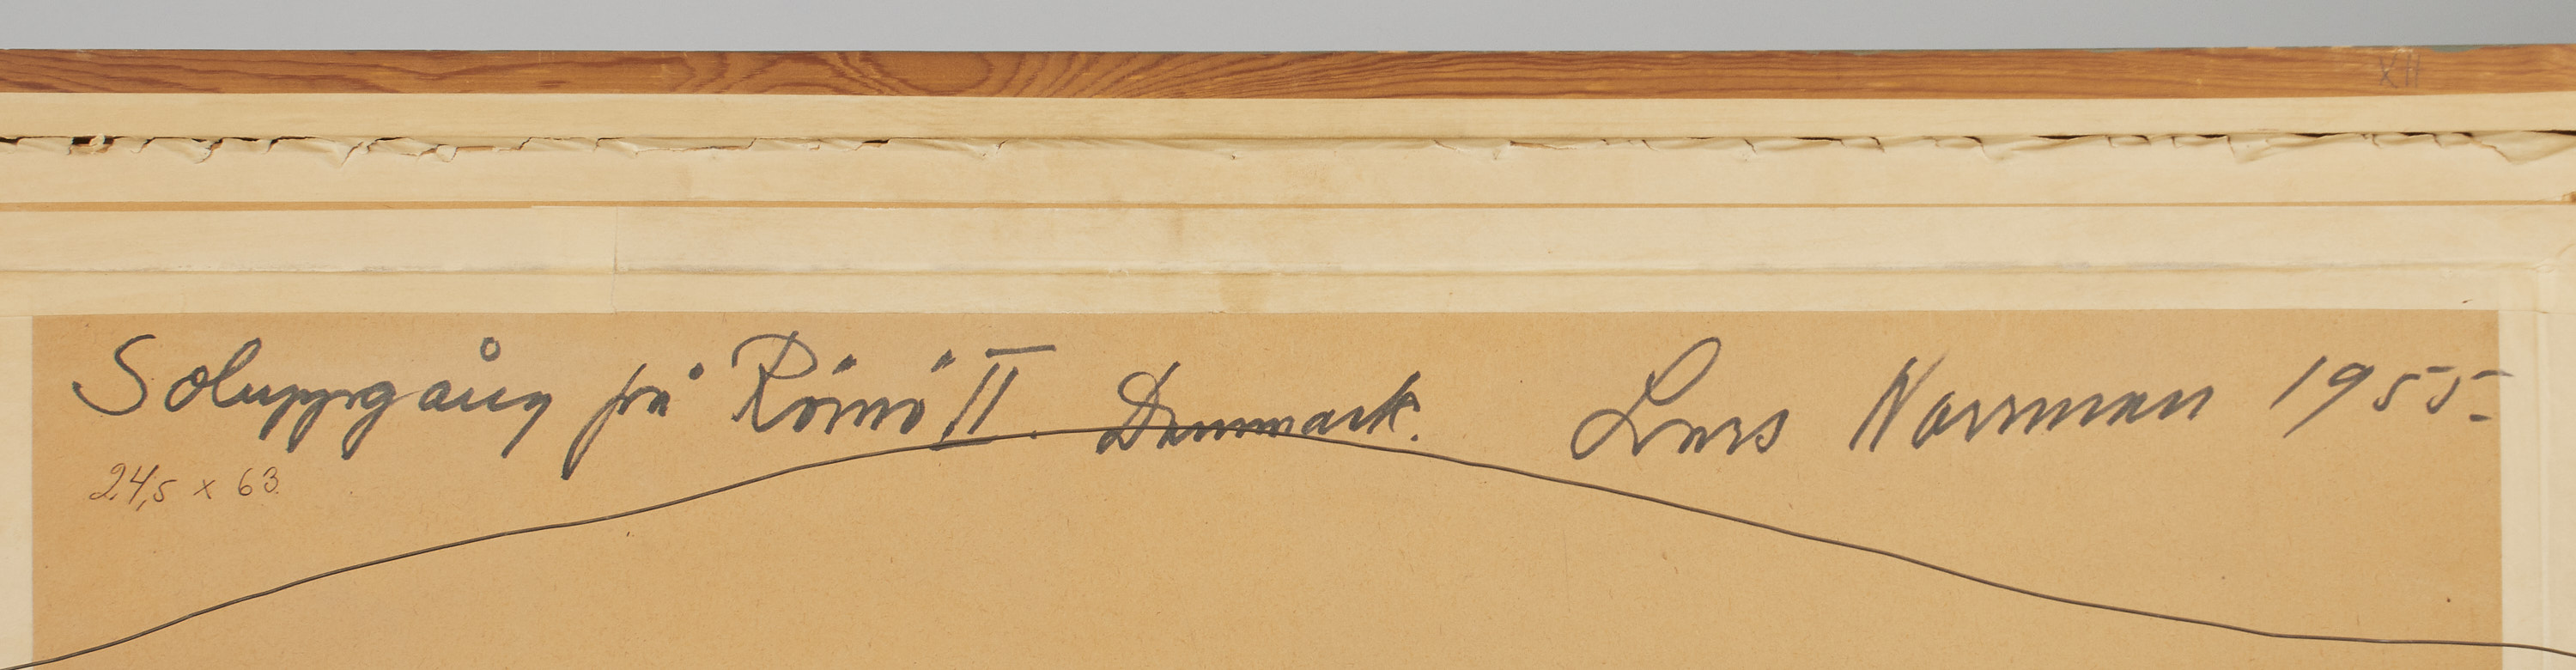 Soluppgång på Römö II. Danmark. Lars Norrman 1955-
24,5 x 63